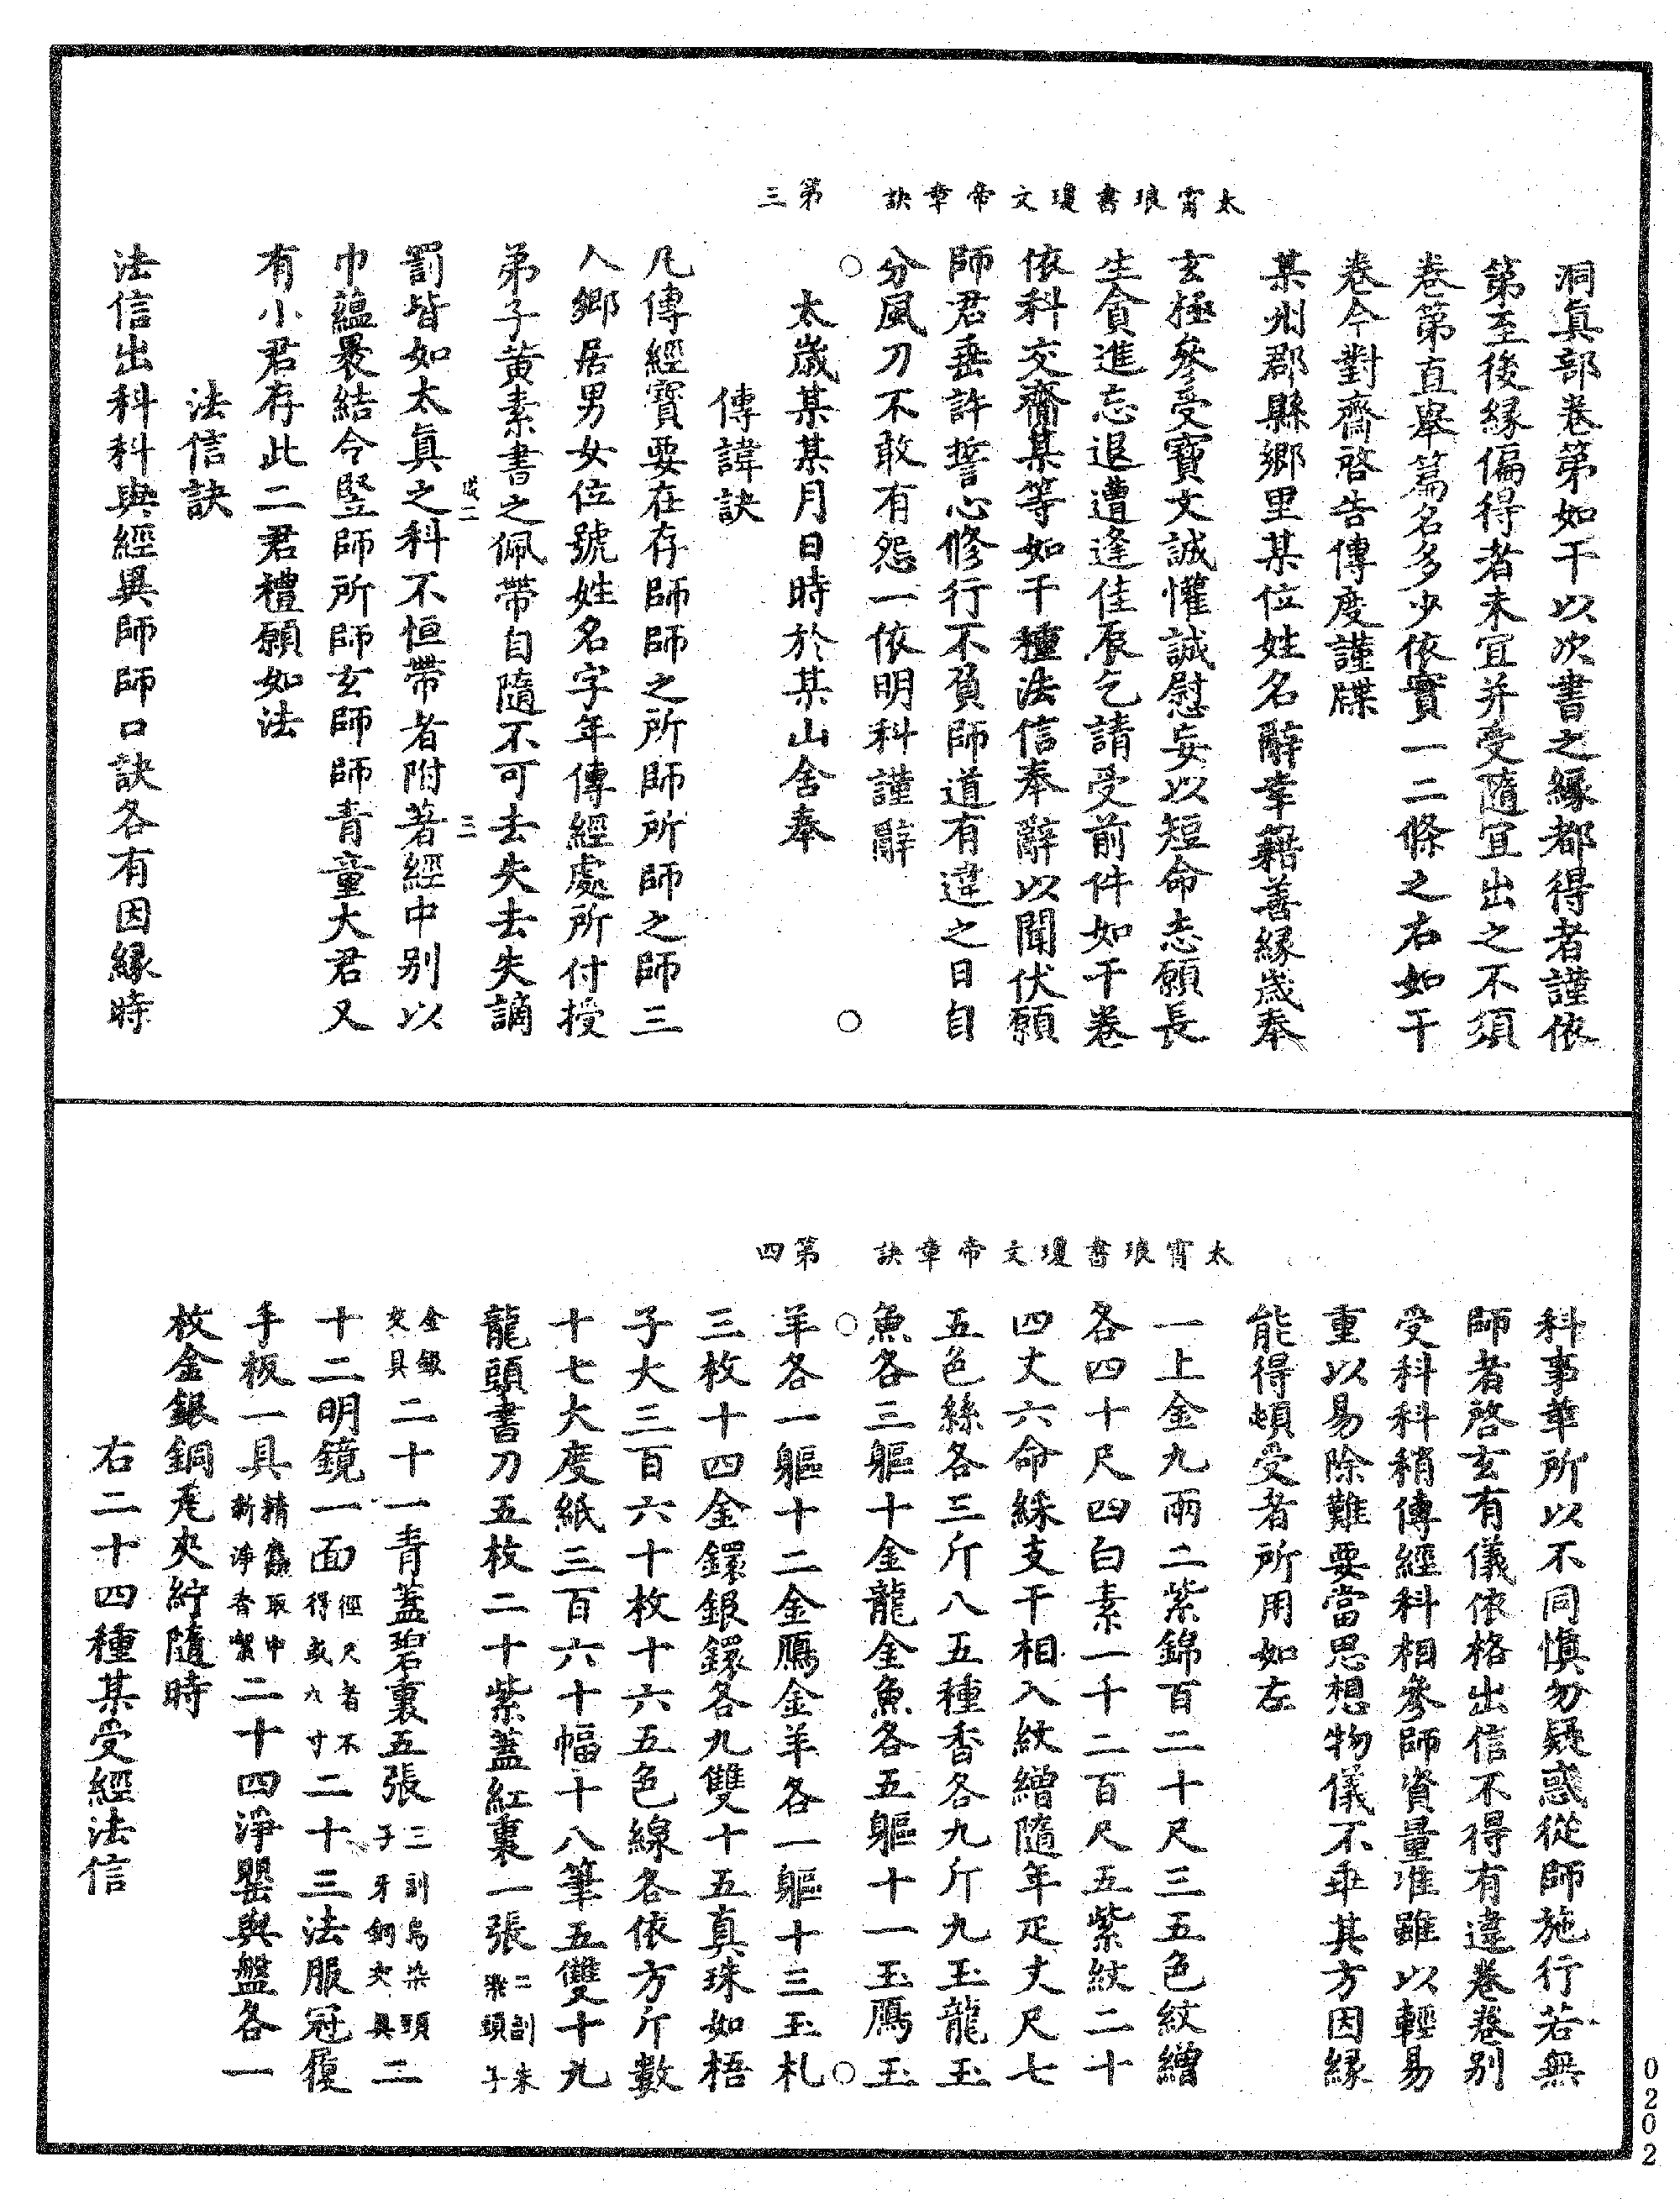 太霄琅書瓊文帝章訣　第三
洞真部卷第如干以次書之緣都得者謹依
第至後緣偏得者未宜并受隨宜出之不須
卷第直舉篇名多少依實一二條之右如干
卷今對齋啓告傳度謹牒
某州郡縣鄉里某位姓名辭幸籍善緣歲奉
玄極參受寶文誠懽誠慰妄以短命志願長
生貪進忘退遭逢佳辰乞請受前件如干卷
依科交齋某等如干種法信奉辭以聞伏願
師君垂許誓心修行不負師道有違之日自
分風刀不敢有怨一依明科謹辭
太歲某某月日時於某山舍奉
傳諱訣
凡傳經寶要在存師師之所師所師之師三
人鄉居男女位號姓名字年傳經處所付授
弟子黃素書之佩帶自隨不可去失去失謫
罰皆如太真之科不恒帶者附著經中別以
巾蘊裹結令堅師所師玄師師青童大君又
有小君存此二君禮願如法
法信訣
法信出科科與經異師師口訣各有因緣時
太霄琅書瓊文帝章訣　第四
科事華所以不同慎勿疑惑從師施行若無
師者啓玄有儀依格出信不得有違卷卷別
受科科稍傳經科相參師資量准雖以輕易
重以易除難要當思想物儀不乖其方因緣
能得頓受者所用如左
一上金九兩二紫錦百二十尺三五色紋繒
各四十尺四白素一千二百尺五紫紋二十
四丈六命綵支干相入紋繒隨年疋丈尺七
五色絲各三斤八五種香各九斤九玉龍玉
魚各三軀十金龍金魚各五軀十一玉鴈玉
羊各一軀十二金鴈金羊各一軀十三玉札
三枚十四金鐶銀鐶各九雙十五真珠如梧
子大三百六十枚十六五色線各依方斤數
十七大度紙三百六十幅十八筆五雙十九
龍頭書刀五枚二十紫蓋紅裏一張二副朱漆頭子
金銀夾具二十一青蓋碧裏五張三副烏染頭子牙銅夾具二
十二明鏡一面徑尺者不得或九寸二十三法服冠履
手板一具精麤取中新淨香潔二十四淨罌與盤各一
枚金銀銅瓦夾紵隨時
右二十四種某受經法信
0202